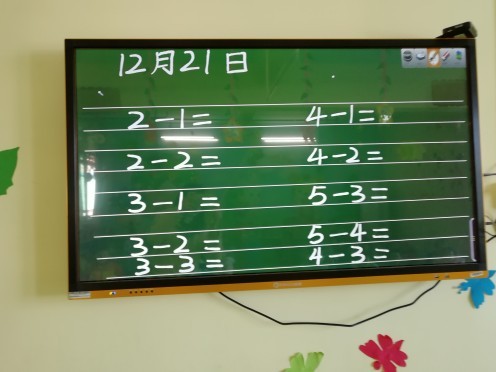 12月21日
2-1= 4-1=
2-2= 4-2=
3-1= 5-3=
3-2= 5-4=
3-3= 4-3=